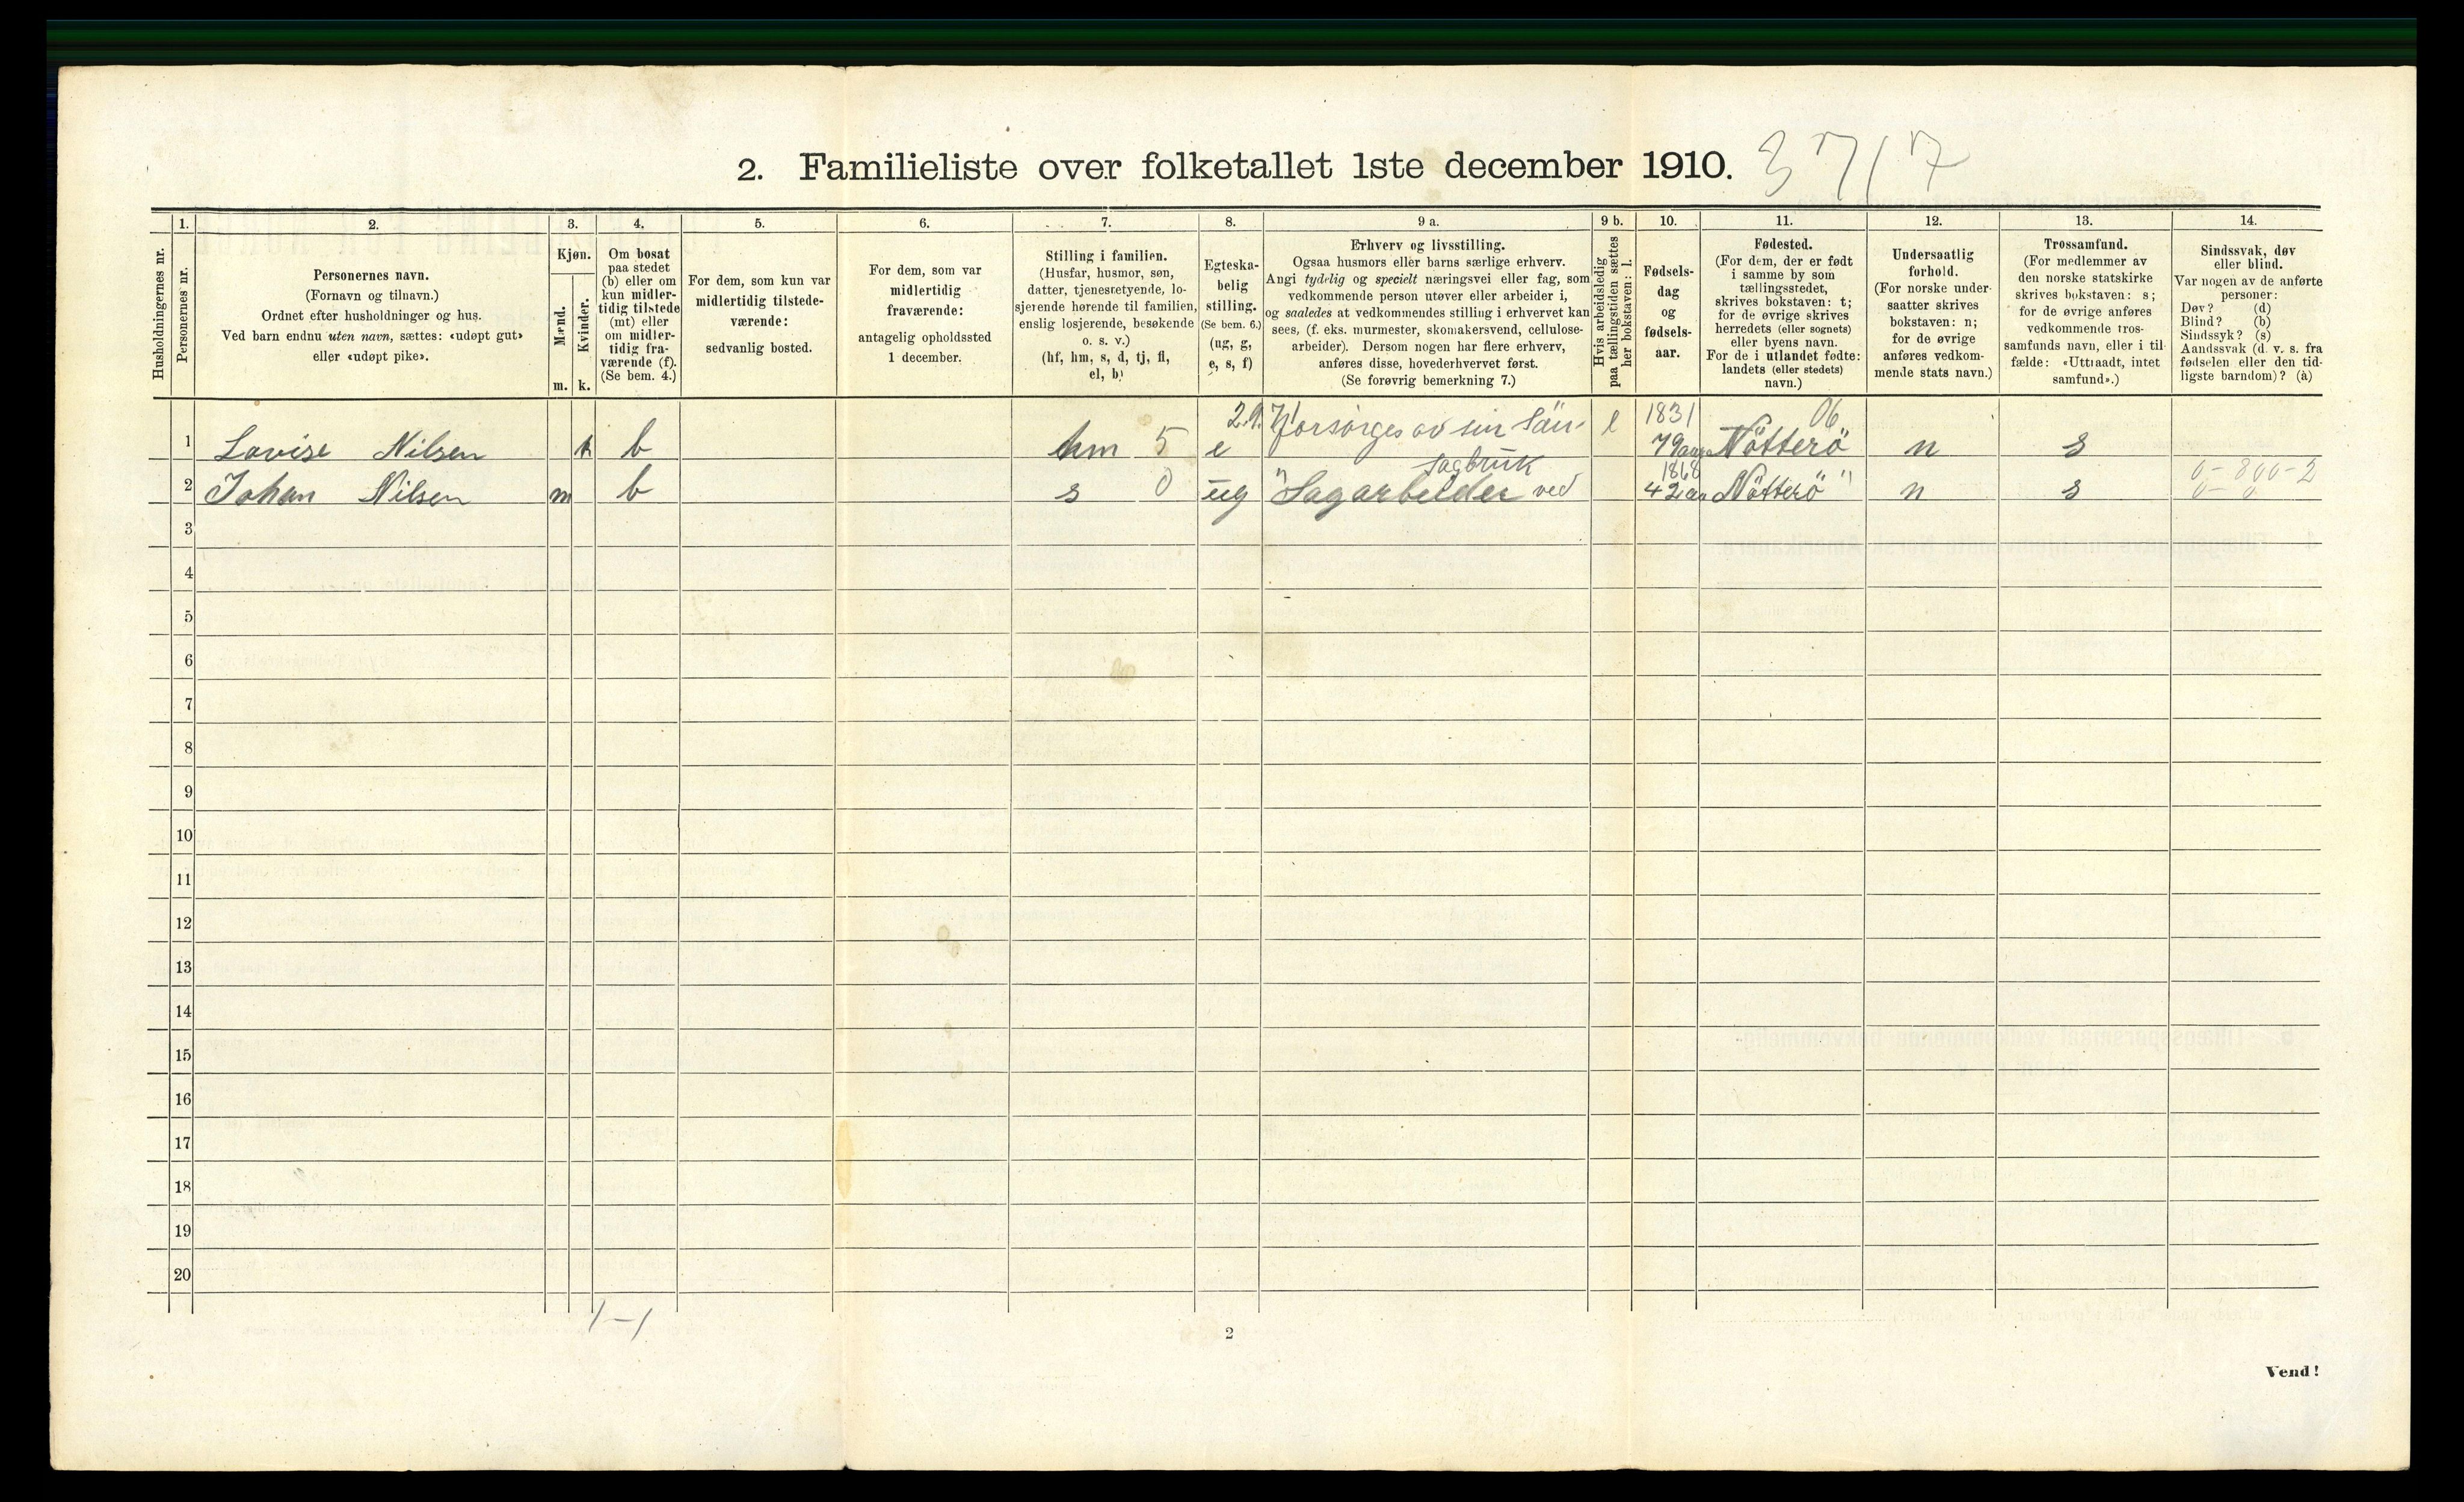 2. Familieliste over folketallet 1ste december 1910. 3717
1. 2. 3. 4. 5. 6. 7. 8. 9 a. 9 b. 10. 11. 12. 13. 14.
Husholdningernes nr.
Personernes nr.
Personernes navn.
(Fornavn og tilnavn.)
Ordnet efter husholdninger og hus.
Ved barn endnu uten navn, sættes: «udøpt gut»
eller «udøpt pike».
Kjøn.
Mænd.
Kvinder.
m. k.
Om bosat
paa stedet
(b) eller om
kun midler-
tidig tilstede
(mt) eller
om midler-
tidig fra-
værende (f).
(Se bem. 4.)
For dem, som kun var
midlertidig tilstede-
værende:
sedvanlig bosted.
For dem, som var
midlertidig
fraværende:
antagelig opholdssted
1 december.
Stilling i familien.
(Husfar, husmor, søn,
datter, tjenestetyende, lo-
sjerende hørende til familien,
enslig losjerende, besøkende
o. s. v.)
(hf, hm, s, d, tj, fl,
el, b)
Egteska-
belig
stilling.
(Se bem. 6.)
(ug, g,
e, s, f)
Erhverv og livsstilling.
Ogsaa husmors eller barns særlige erhverv.
Angi tydelig og specielt næringsvei eller fag, som
vedkommende person utøver eller arbeider i,
og saaledes at vedkommendes stilling i erhvervet kan
sees, (f. eks. murmester, skomakersvend, cellulose-
arbeider). Dersom nogen har flere erhverv,
anføres disse, hovederhvervet først.
(Se forøvrig bemerkning 7.)
Hvis arbeidsledig
paa tællingstiden sættes
her bokstaven: l.
Fødsels-
dag
og
fødsels-
aar.
Fødested.
(For dem, der er født
i samme by som
tællingsstedet,
skrives bokstaven: t;
for de øvrige skrives
herredets (eller sognets)
eller byens navn.
For de i utlandet fødte:
landets (eller stedets)
navn.)
Undersaatlig
forhold.
(For norske under-
saatter skrives
bokstaven: n;
for de øvrige
anføres vedkom-
mende stats navn.)
Trossamfund.
(For medlemmer av
den norske statskirke
skrives bokstaven: s;
for de øvrige anføres
vedkommende tros-
samfunds navn, eller i til-
fælde: «Uttraadt, intet
samfund».)
Sindssvak, døv
eller blind.
Var nogen av de anførte
personer:
Døv? (d)
Blind? (b)
Sindssyk? (s)
Aandssvak (d. v. s. fra
fødselen eller den tid-
ligste barndom)? (à)
1831 06
1 Lovise Nilsen k b hm 5 e Forsörges av sin Sön l 79 aar Nötterö n s
sagbruk 1868 0-800-2
2 Johan Nilsen m b s 0 ug Sagarbeider ved 42 aar Nötterö " n s 0-0
3
4
5
6
7
8
9
10
11
12
13
14
15
16
17
18
19
20
1-1
2
Vend!